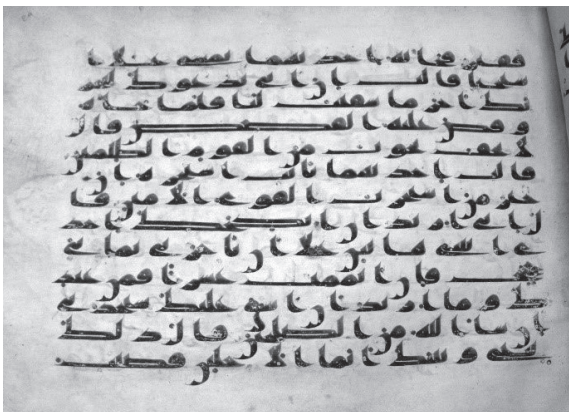 فقير فجاته احديهما تمشى على ا
ستحيا قالت ان ابى يدعوك ليجز
يك اجر ما سقيت لنا فلما جاه
و قص عليه القصص قال
لا تخف نجوت من القوم الظلمين
قالت احديهما يابت استجره ان
خير من استجرت القوى الامين قا
ل انى اريد ان انكحك احد
ى ابنتى هتين على ان تاجرنى ثمنى
حجج فان اتممت عشرا فمن عند
ك وما اريد ان اشق عليك ستجدنى
ان شا الله من الصلحين قال ذلك
بينى وبينك ايما الاجلين قضيت